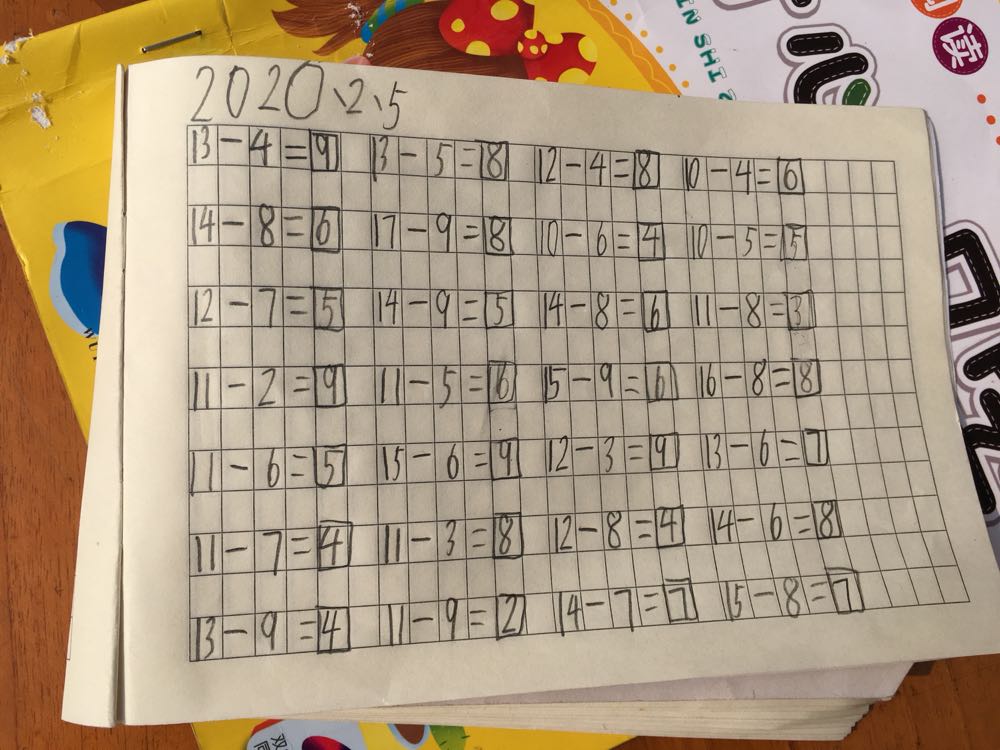 2020、2、5
13-4=9 13-5=8 12-4=8 10-4=6
14-8=6 17-9=8 10-6=4 10-5=5
12-7=5 14-9=5 14-8=6 11-8=3
11-2=9 11-5=6 15-9=6 16-8=8
11-6=5 15-6=9 12-3=9 13-6=7
11-7=4 11-3=8 12-8=4 14-6=8
13-9=4 11-9=2 14-7=7 15-8=7
读
IN SHI 2
双